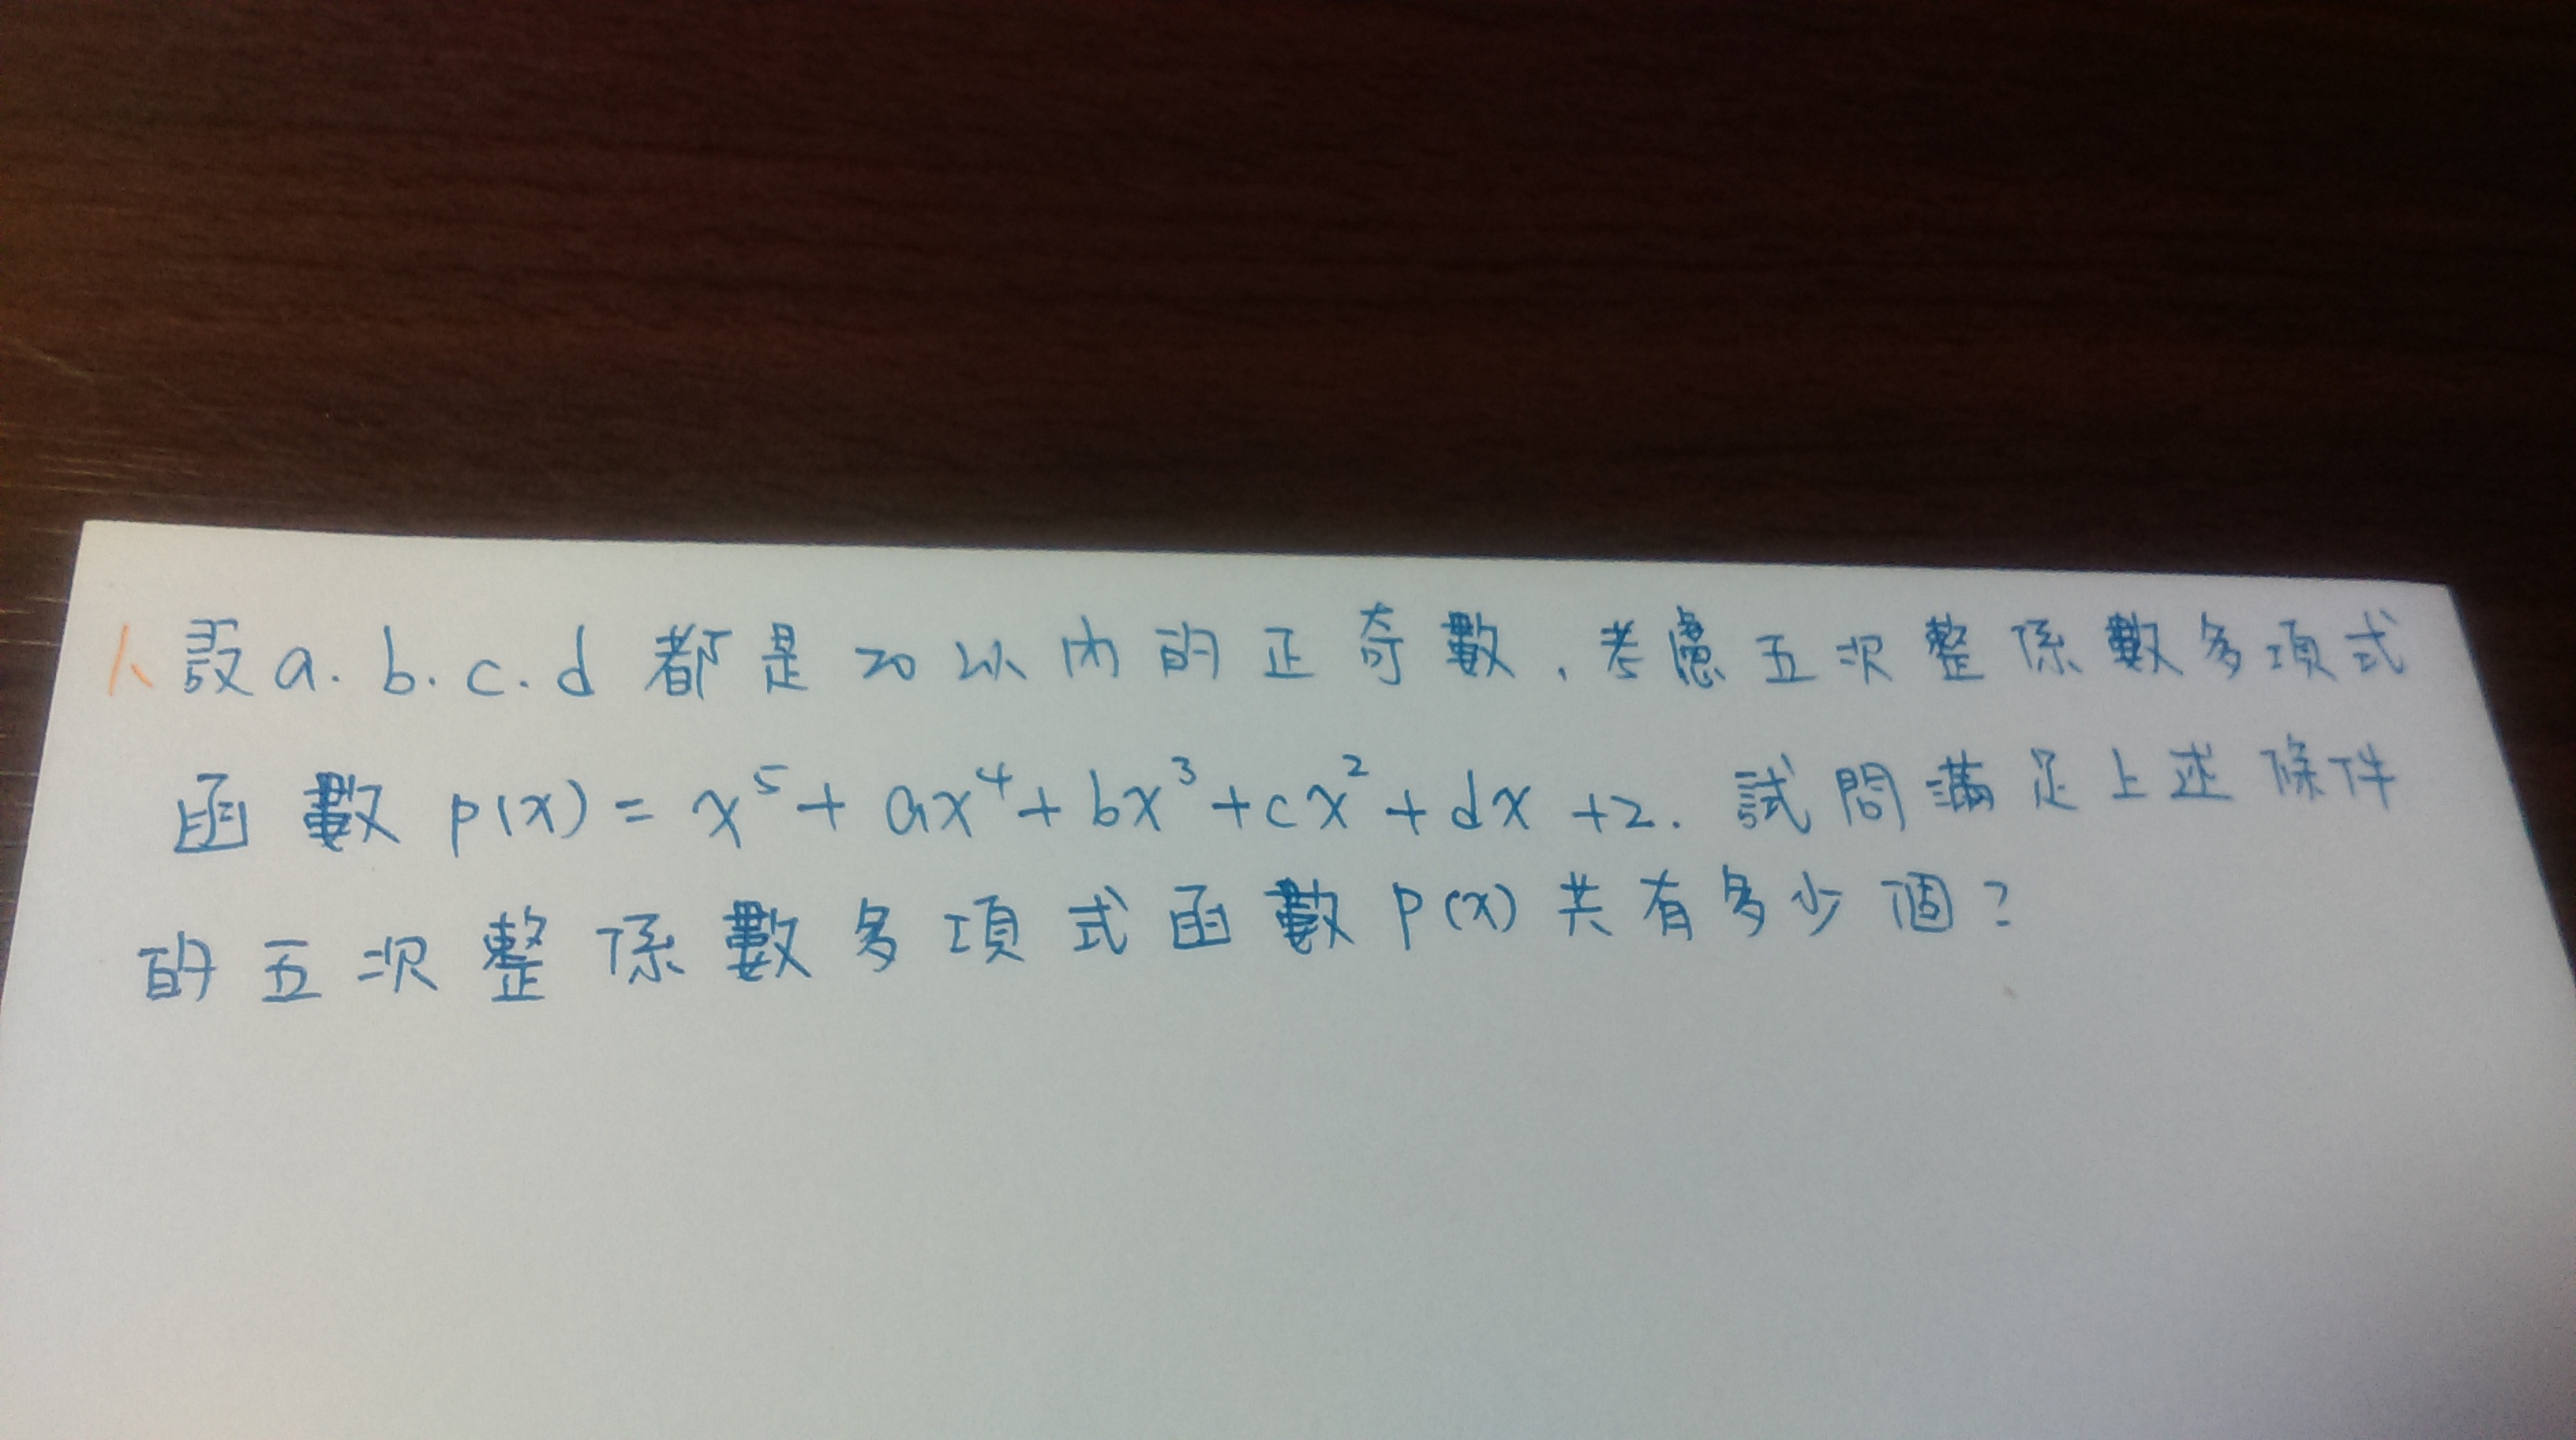 1、設a.b.c.d 都是20以內的正奇數、考慮五次整係數多項式
函數 p(x) = x⁵ + ax⁴ + bx³ + cx² + dx +2. 試問滿足上述條件
的五次整係數多項式函數 p(x) 共有多少個？